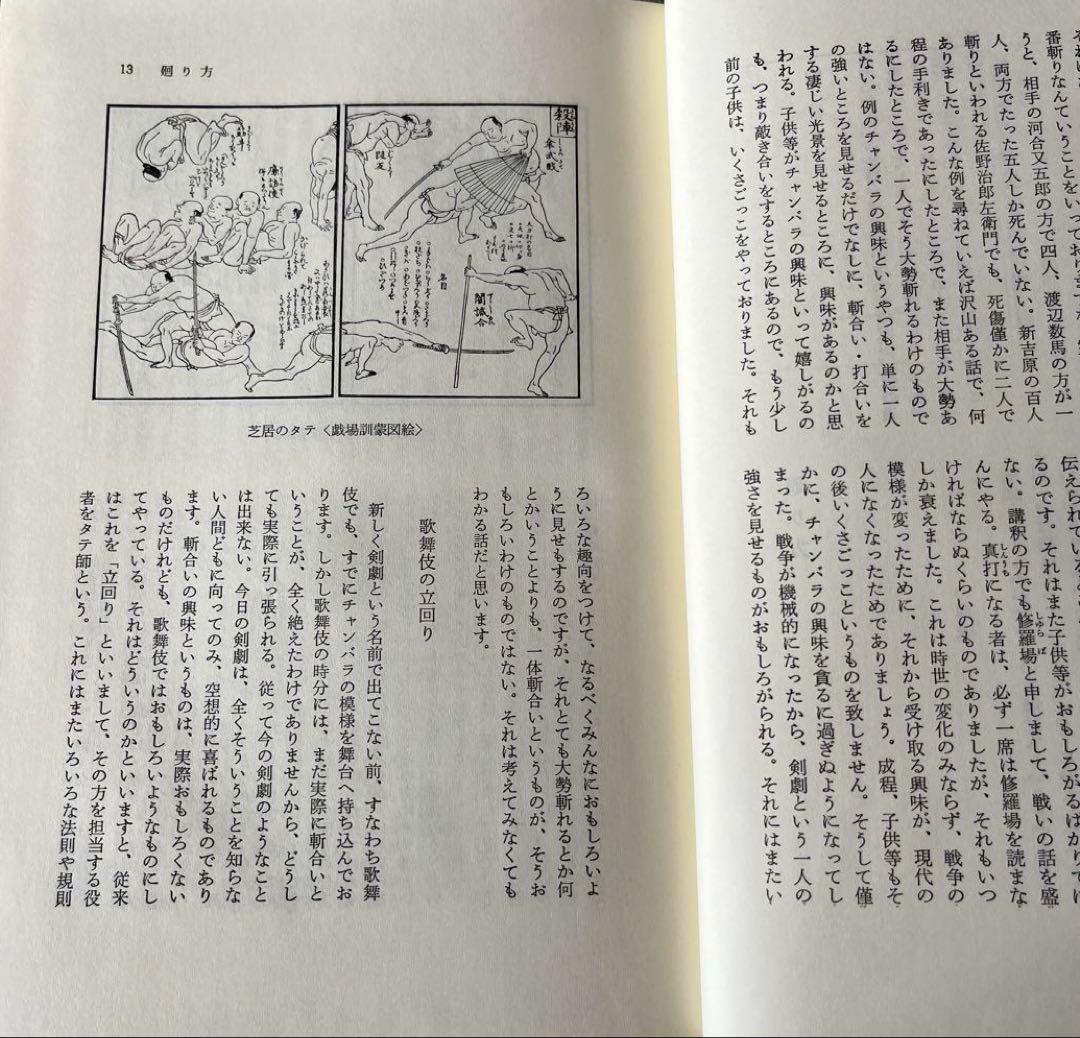 番斬りなんていうことをいっており
うと、相手の河合又五郎の方で四人、渡辺数馬の方が一
人、両方でたった五人しか死んでいない。新吉原の百人
斬りといわれる佐野治郎左衛門でも、死傷僅かに二人で
ありました。こんな例を尋ねていえば沢山ある話で、何
程の手利きであったにしたところで、また相手が大勢あ
るにしたところで、一人でそう大勢斬れるわけのもので
はない。例のチャンバラの興味というやつも、単に一人
の強いところを見せるだけでなしに、斬合い・打合いを
する凄じい光景を見せるところに、興味があるのかと思
われる。子供等がチャンバラの興味といって嬉しがるの
も、つまり敲き合いをするところにあるので、もう少し
前の子供は、いくさごっこをやっておりました。それも
伝えられている
るのです。それはまた子供等がおもしろがるばかりで
ない。講釈の方でも修羅場と申しまして、戦いの話を盛
しゅらば
んにやる。真打になる者は、必ず一席は修羅場を読まな
しんうち
ければならぬくらいのものでありましたが、それもいつ
しか衰えました。これは時世の変化のみならず、戦争の
模様が変ったために、それから受け取る興味が、現代の
人になくなったためでありましょう。成程、子供等もそ
の後いくさごっこというものを致しません。そうして僅
かに、チャンバラの興味を貪るに過ぎぬようになってし
まった。戦争が機械的になったから、剣劇という一人の
強さを見せるものがおもしろがられる。それにはまたい
13 廻り方
殺陣
闇試合
芝居のタテ〈戯場訓蒙図絵〉
ろいろな趣向をつけて、なるべくみんなにおもしろいよ
うに見せもするのですが、それとても大勢斬れるとか何
とかいうことよりも、一体斬合いというものが、そうお
もしろいわけのものではない。それは考えてみなくても
わかる話だと思います。
歌舞伎の立回り
新しく剣劇という名前で出てこない前、すなわち歌舞
伎でも、すでにチャンバラの模様を舞台へ持ち込んでお
ります。しかし歌舞伎の時分には、まだ実際に斬合いと
いうことが、全く絶えたわけでありませんから、どうし
ても実際に引っ張られる。従って今の剣劇のようなこと
は出来ない。今日の剣劇は、全くそういうことを知らな
い人間どもに向ってのみ、空想的に喜ばれるものであり
ます。斬合いの興味というものは、実際おもしろくない
ものだけれども、歌舞伎ではおもしろいようなものにし
てやっている。それはどういうのかといいますと、従来
はこれを「立回り」といいまして、その方を担当する役
者をタテ師という。これにはまたいろいろな法則や規則